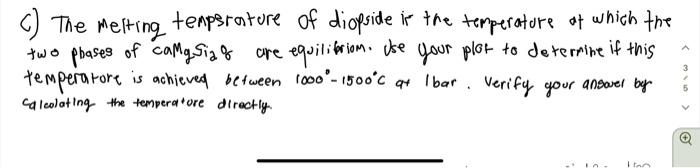 c) The melting tempsratore of diopside is the temperature at which the
two phases of caMgSi28 are equilibriom. Use your plot to determine if this
temperatore is achieved between 1000°-1500°C at 1bar. Verify your answer by
calcolating the temperature directly.
3
5